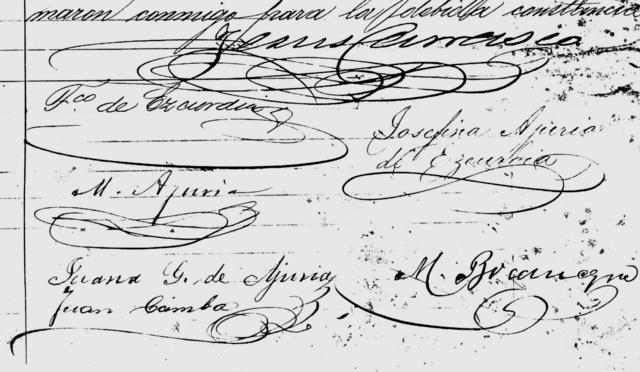 maron conmigo para la debida constancia
Jesus Carrasco
Fco de Ezcurdia
Josefina Ajuria
de Ezcurdia
M. Ajuria
Juana G. de Ajuria
Juan Camba
M. Bocanegra